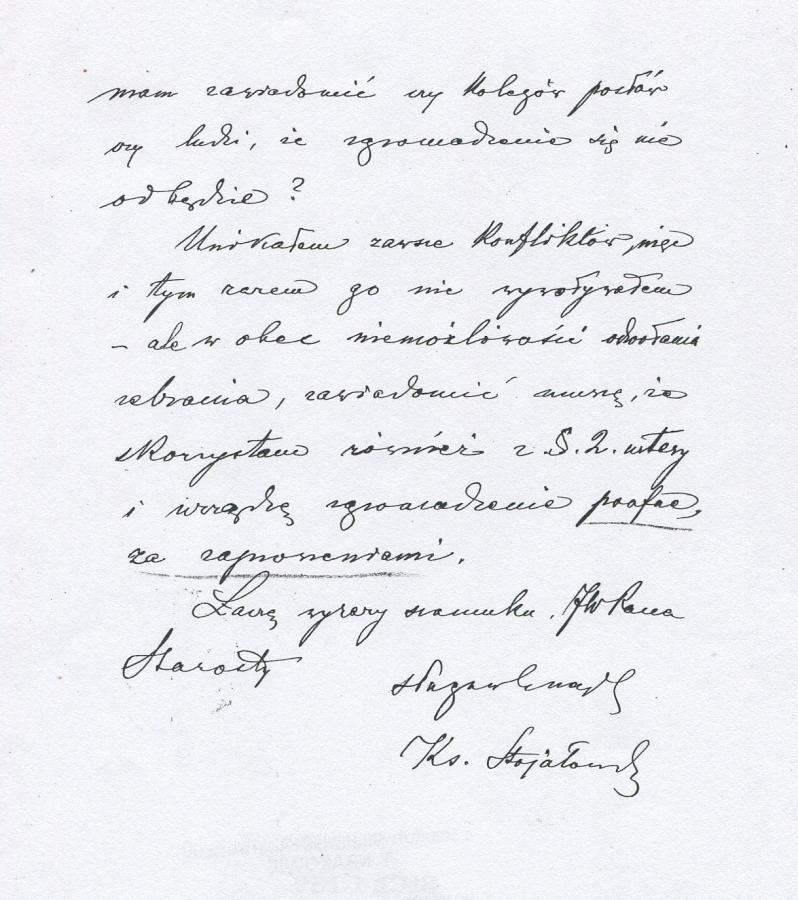 mam zawiadomić czy kolegów posłów
czy ludzi, że zgromadzenie się nie
odbędzie?
Unikałem zawsze konfliktów, więc
i tym razem go nie wywoływałem
– ale w obec niemożliwości odwołania
zebrania, zawiadomić muszę, że
skorzystam również z §. 2. ustawy
i urządzę zgromadzenie poufne,
za zaproszeniami.
Łączę wyrazy szacunku. JW Pana
Starosty
sługa w Chryst
Ks. Stojałowski